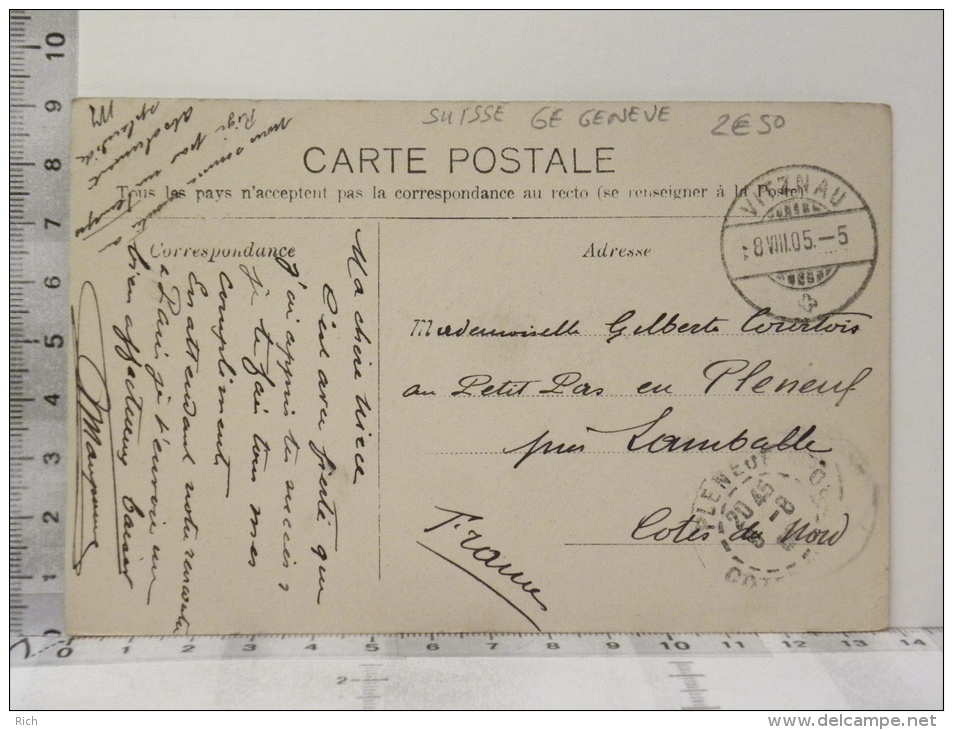 SUISSE GE GENEVE 2€50
CARTE POSTALE
Tous les pays n'acceptent pas la correspondance au recto (se renseigner à la Poste)
Correspondance
Adresse
VITZNAU
8 VIII.05.-5
Mademoiselle Gilberte Courtois
au Petit Pas en Pleneuf
près Lamballe
Cotes du Nord
France
PLENEUF
20 45
Ma chère nièce
C'est avec fierté que
j'ai appris tes succès &
je te fais tous mes
compliments
En attendant notre rencontre
à Paris je t'envoie un
bien affectueux baiser
Nous sommes
Rigi par un temps
absolument
splendide
0 1 2 3 4 5 6 7 8 9 10
0 1 2 3 4 5 6 7 8 9 10 11 12 13 14
2
Rich
www.delcampe.net